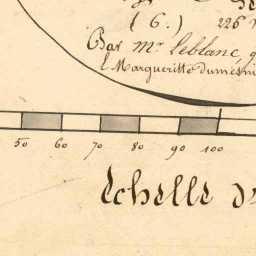 (6.) 226
Par Mr. leblanc,
Margueritte dumesni
50 60 70 80 90 100
Echelle de